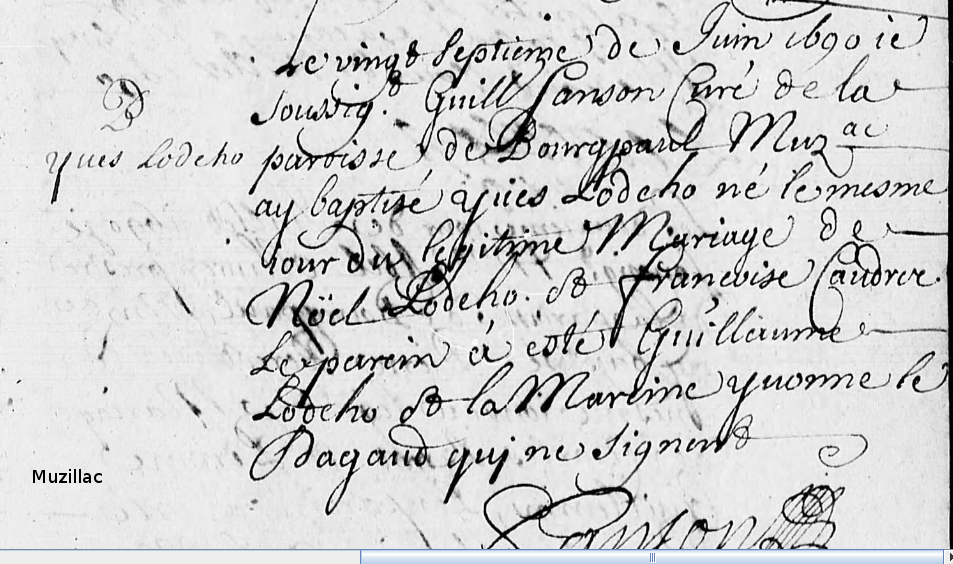 Le vingt septieme de Juin 1690 ie
soussig.é Guill Janson Curé de la
B
yves Lodeho
paroisse de Bourgpaul Muzac
ay baptisé yves Lodeho né le mesme
iour du legitime Mariage de
Nöel Lodeho. et francoise Caudree.
Le parein à esté Guillaume
Lodeho et la Mareine yvonne le
Dagaud qui ne signent
Muzillac